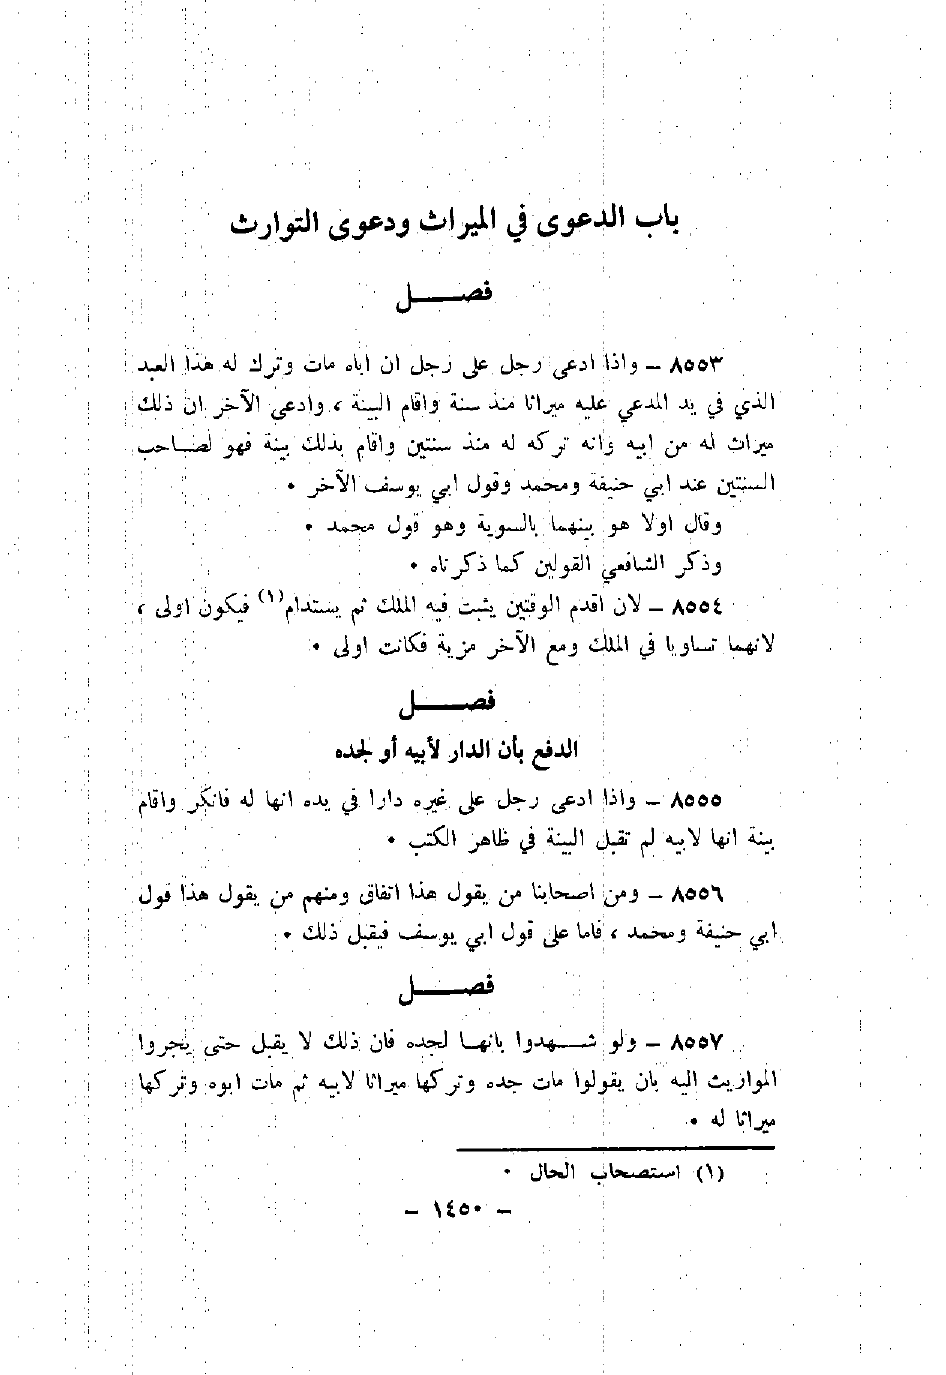 باب الدعوى في الميراث ودعوى التوارث
فصــــل
٨٥٥٣ – واذا ادعى رجل على رجل ان اباه مات وترك له هذا العبد
الذي في يد المدعي عليه ميراثا منذ سنة واقام البينة ، وادعى الآخر ان ذلك
ميراث له من ابيه وانه تركه له منذ سنتين واقام بذلك بينة فهو لصاحب
السنتين عند ابي حنيفة ومحمد وقول ابي يوسف الآخر ٠
وقال اولا هو بينهما بالسوية وهو قول محمد ٠
وذكر الشافعي القولين كما ذكرناه ٠
٨٥٥٤ – لان اقدم الوقتين يثبت فيه الملك ثم يستدام(١) فيكون اولى ،
لانهما تساويا في الملك ومع الآخر مزية فكانت اولى ٠
فصــــل
الدفع بأن الدار لأبيه أو لجده
٨٥٥٥ – واذا ادعى رجل على غيره دارا في يده انها له فانكر واقام
بينة انها لابيه لم تقبل البينة في ظاهر الكتب ٠
٨٥٥٦ – ومن اصحابنا من يقول هذا اتفاق ومنهم من يقول هذا قول
ابي حنيفة ومحمد ، فاما على قول ابي يوسف فيقبل ذلك ٠
فصــــل
٨٥٥٧ – ولو شــهدوا بانهـا لجده فان ذلك لا يقبل حتى يجروا
المواريث اليه بان يقولوا مات جده وتركها ميراثا لابيه ثم مات ابوه وتركها
ميراثا له ٠
(١) استصحاب الحال ٠
– ١٤٥٠ –